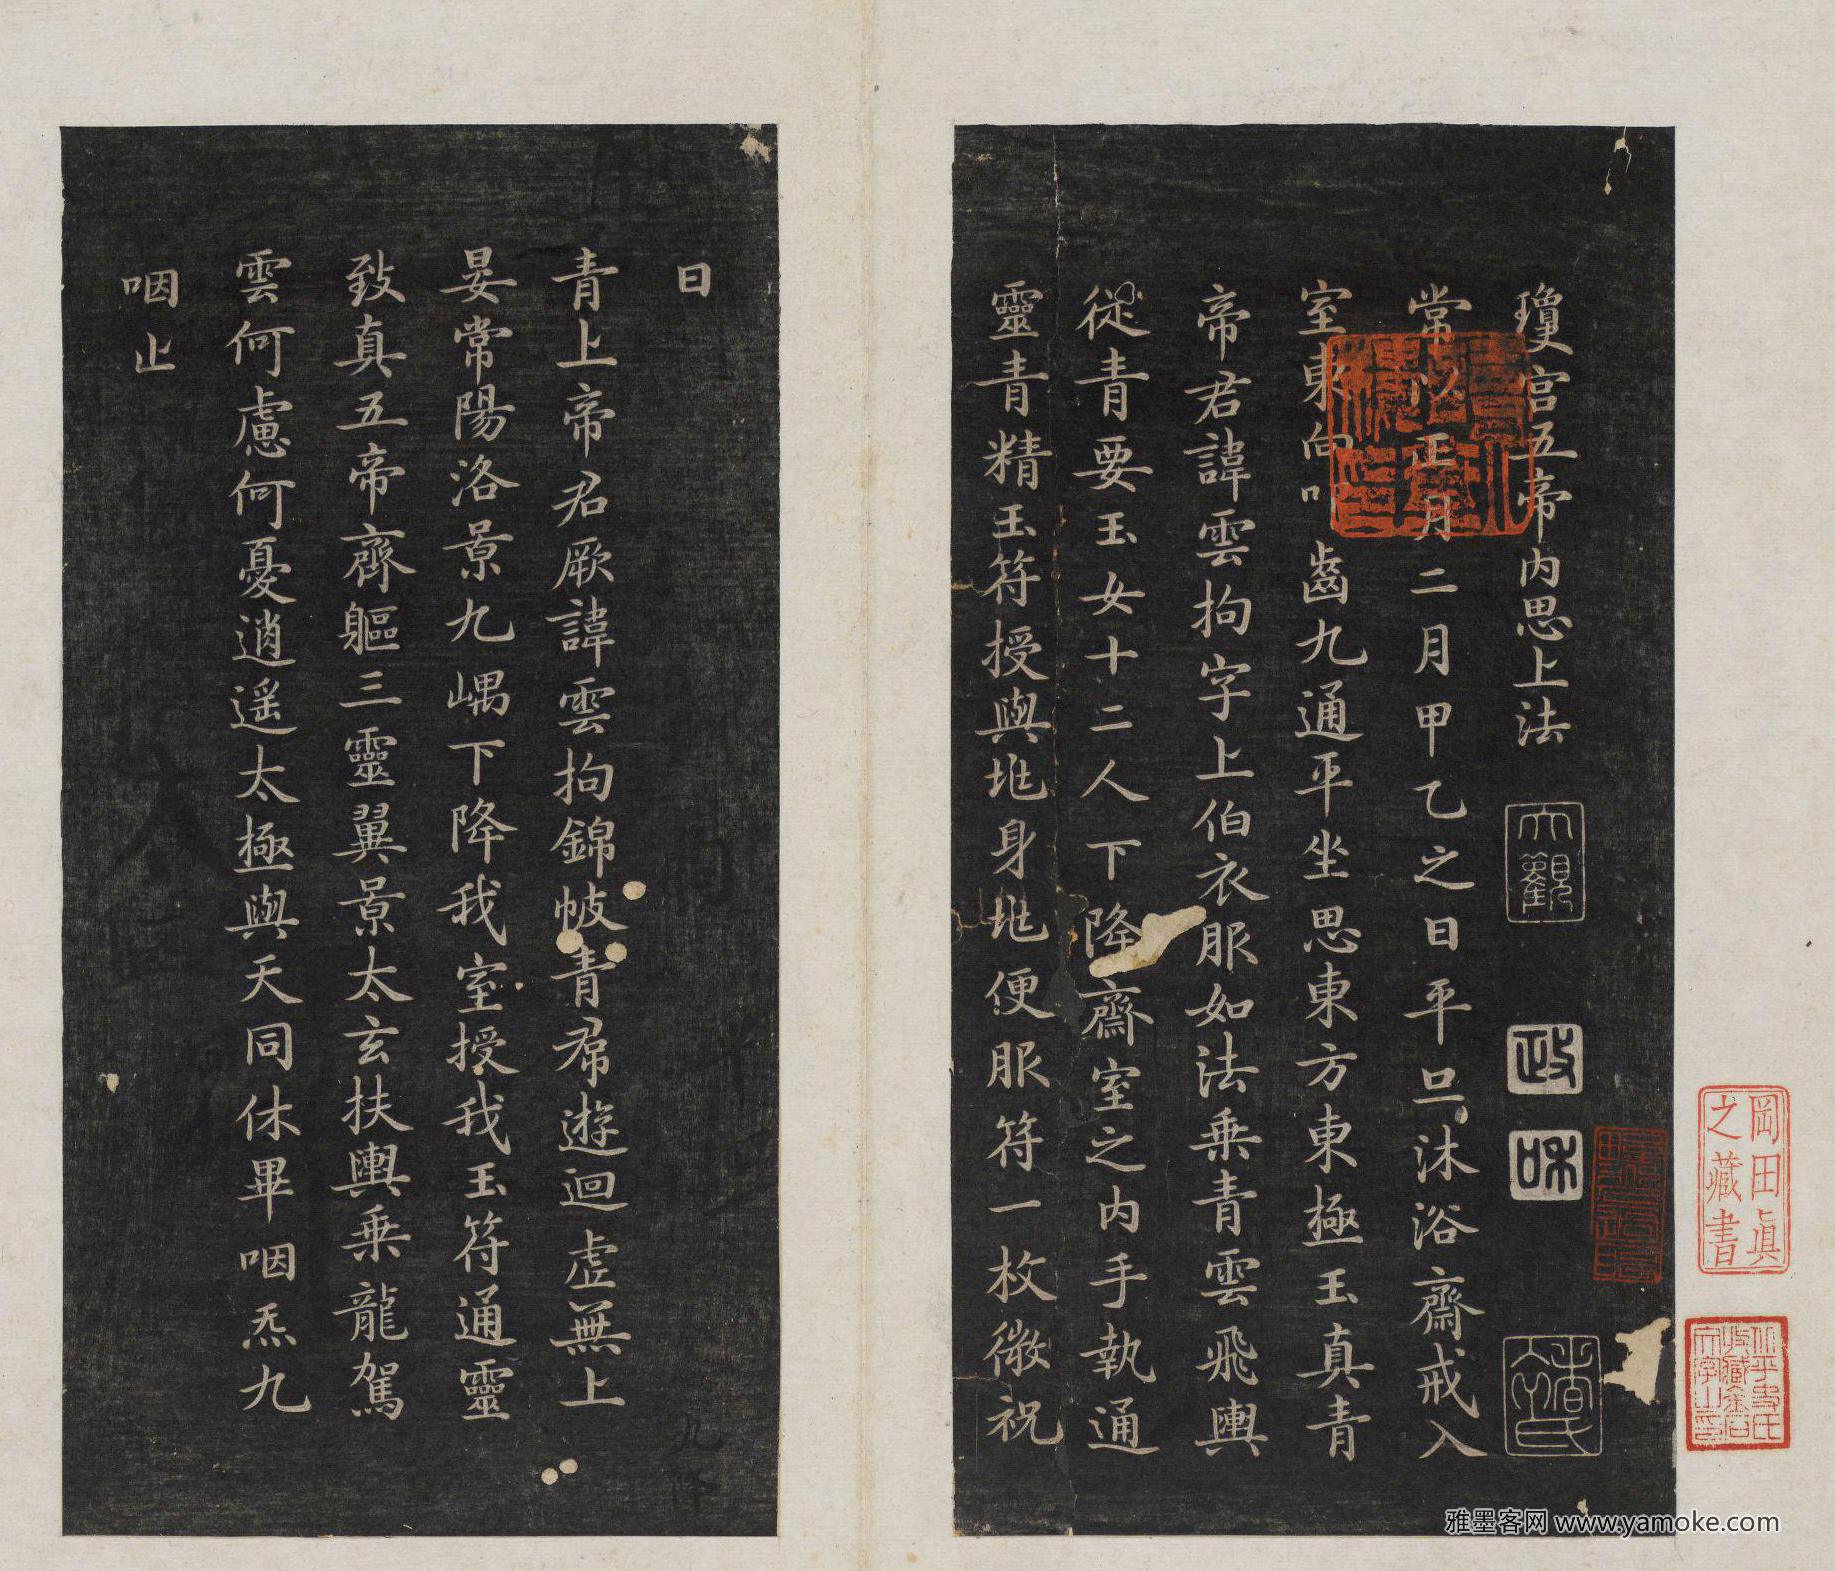 瓊宮五帝內思上法
常以正月二月甲乙之日平旦沐浴齋戒入
室東向叩齒九通平坐思東方東極玉真青
帝君諱雲拘字上伯衣服如法乘青雲飛輿
從青要玉女十二人下降齋室之內手執通
靈青精玉符授與兆身兆便服符一枚微祝
曰
青上帝君厥諱雲拘錦帔青帬遊迴虛無上
晏常陽洛景九嵎下降我室授我玉符通靈
致真五帝齊軀三靈翼景太玄扶輿乘龍駕
雲何慮何憂逍遙太極與天同休畢咽炁九
咽止
大觀
政
和
岡田眞
之藏書
雅墨客网 www.yamoke.com